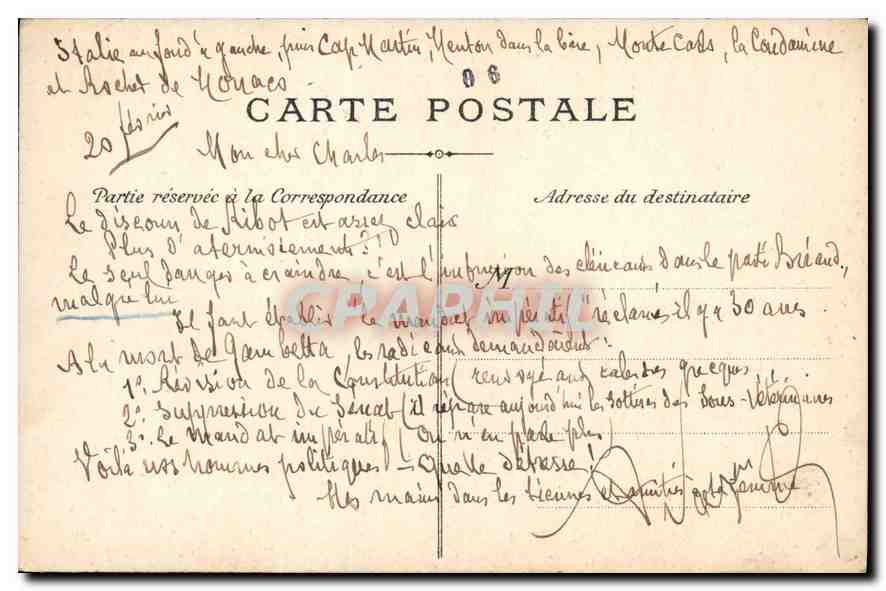 Italie au fond à gauche, puis Cap Martin, Menton dans la baie, Monte Carlo, la Condamine
et Rocher de Monaco
06
CARTE POSTALE
20 février
Mon cher Charles
Partie réservée à la Correspondance
Adresse du destinataire
Le discours de Ribot est assez clair
Plus d'atermoiements?!!
M
Le seul danger à craindre, c'est l'infusion des cléricaux dans le parti Briand,
malgré lui
CPAPHIL
Il faut établir le mandat impératif réclamé il y a 30 ans
A la mort de Gambetta les radicaux demandaient:
1º. Révision de la Constitution (renvoyé aux calendes grecques
2º. Suppression du Sénat (il répare aujourd'hui les sottises des Sous-Vétérinaires
3º. Le Mandat impératif (On n'en parle plus)
Voilà nos hommes politiques - Quelle détresse!
Mes mains dans les tiennes et amitiés à ta femme